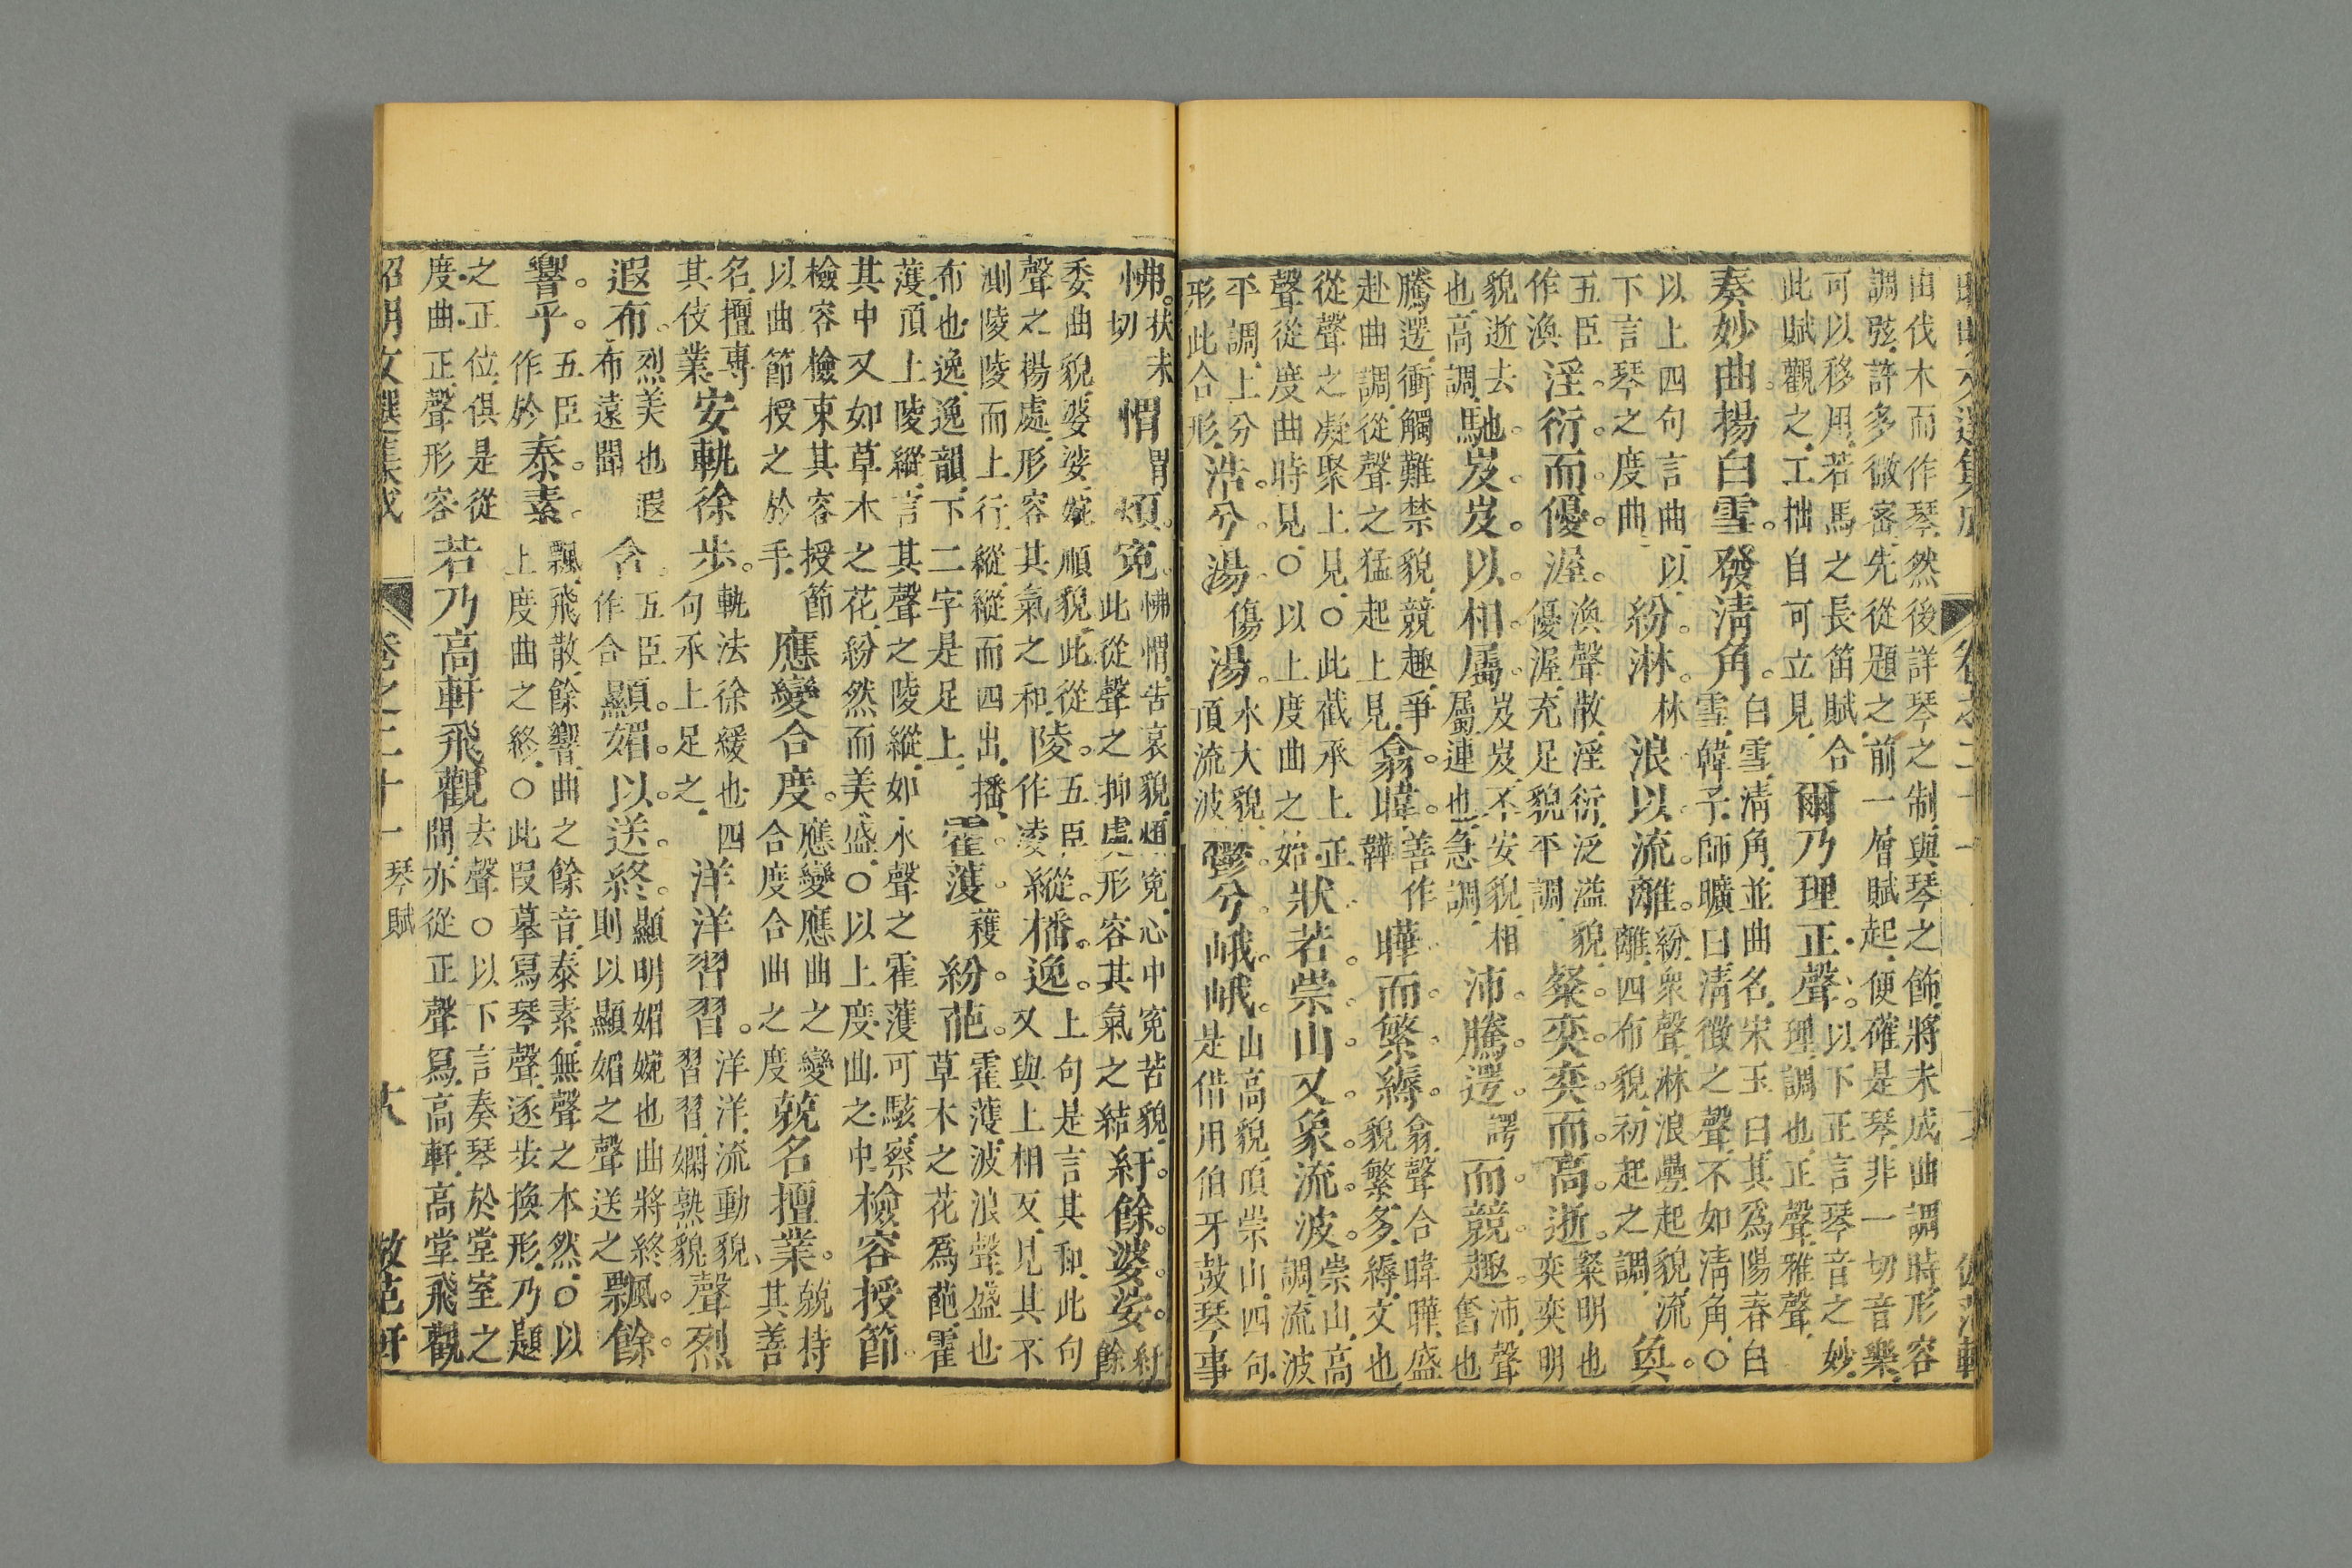 由伐木而作琴然後詳琴之制與琴之飾將未成曲調時形容
調弦許多微密先從題之前一層賦起便確是琴非一切音樂
可以移用若馬之長笛賦合
此賦觀之工拙自可立見
爾乃理正聲
以下正言琴音之妙
理調也正聲雅聲
奏妙曲揚白雪發淸角
白雪淸角並曲名宋玉曰其爲陽春白
雪韓子師曠曰淸徵之聲不如淸角○
以上四句言曲以
下言琴之度曲
紛淋
林
浪以流離
紛衆聲淋浪壘起貌流
離四布貌初起之調
奐
五臣
作渙
淫衍而優渥
渙聲散淫衍泛溢貌
優渥充足貌平調
粲奕奕而高逝
粲明也
奕奕明
貌逝去
也高調
馳岌岌以相屬
岌岌不安貌相
屬連也急調
沛騰遌
諤
而競趣
沛聲
奮也
騰遌衝觸難禁貌競趣爭
赴曲調從聲之猛起上見
翕韡
善作
韡
曄而繁縟
翕聲合暐曄盛
貌繁多縟文也
從聲之凝聚上見○此截承上正
聲從度曲時見○以上度曲之始
狀若崇山又象流波
崇山高
調流波
平調上分
形此合形
浩兮湯
傷
湯
水大貌
頂流波
鬱兮峨峨
山高貌頂崇山四句
是借用伯牙鼓琴事
怫
狀未
切
㥜
胃
煩冤
怫㥜苦哀貌煩冤心中冤苦貌
此從聲之抑處形容其氣之結
紆餘婆娑
紆
餘
委曲貌婆娑婉順貌此從
聲之揚處形容其氣之和
陵
五臣
作凌
縱播逸
上句是言其和此句
又與上相反見其不
測陵陵而上行縱縱而四出播
布也逸逸韻下二字是足上
霍濩
穫
紛葩
霍濩波浪聲盛也
草木之花爲葩霍
濩頂上陵縱言其聲之陵縱如水聲之霍濩可駭察
其中又如草木之花紛然而美盛○以上度曲之中
檢容授節
檢容檢束其容授節
以曲節授之於手
應變合度
應變應曲之變
合度合曲之度
兢名擅業
兢持
其善
名擅專
其伎業
安軌徐步
軌法徐緩也四
句承上足之
洋洋習習
洋洋流動貌
習習嫻熟貌
聲烈
遐布
烈美也遐
布遠聞
含
五臣
作合
顯媚以送終
顯明媚婉也曲將終
則以顯媚之聲送之
飄餘
響乎
五臣
作於
泰素
飄飛散餘響曲之餘音泰素無聲之本然○以
上度曲之終○此段摹寫琴聲逐步換形乃題
之正位俱是從
度曲正聲形容
若乃高軒飛觀
去聲○以下言奏琴於堂室之
間亦從正聲寫高軒高堂飛觀
昭明文選集成
卷之二十一
琴賦
六
倣范軒